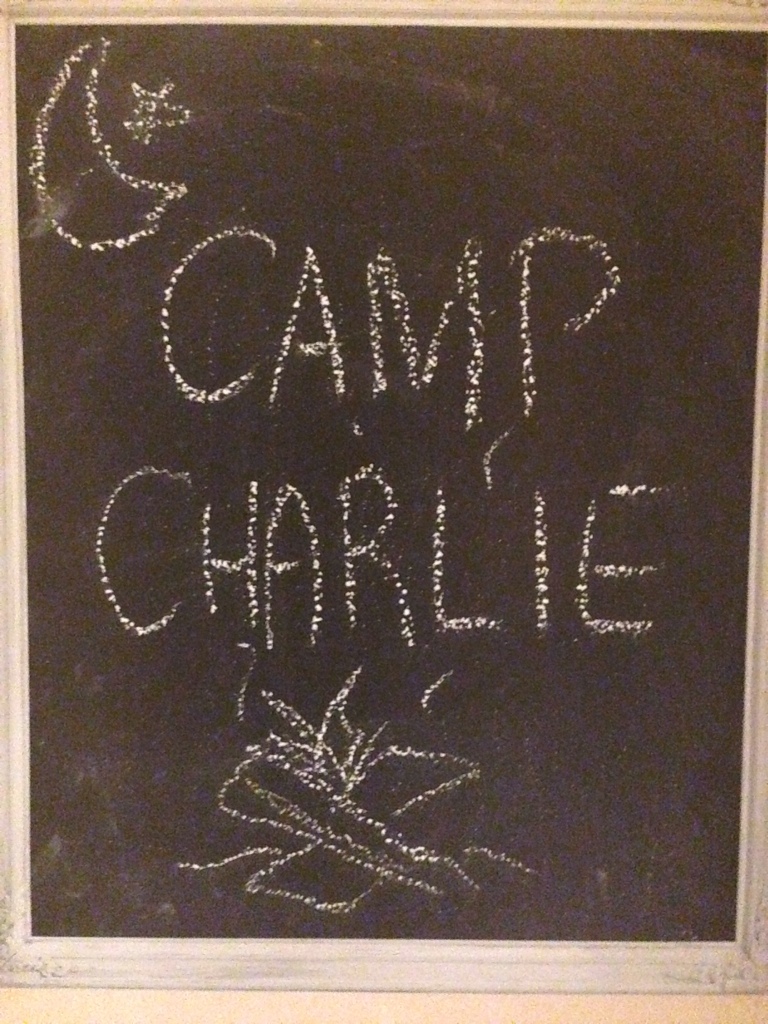 CAMP
CHARLIE